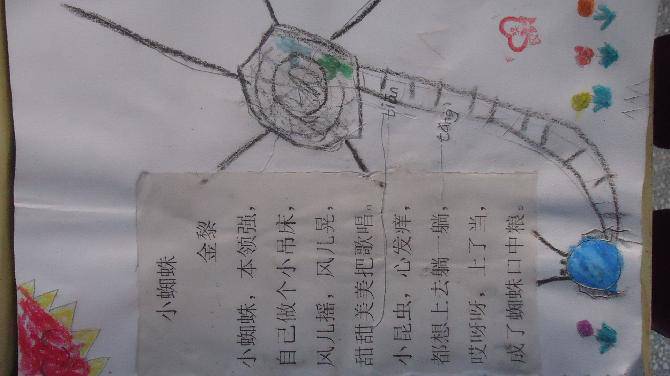 小蜘蛛
金黎
小蜘蛛，本领强，
自己做个小吊床，
风儿摇，风儿晃，
甜甜美美把歌唱。
小昆虫，心发痒，
都想上去躺一躺，
哎呀呀，上了当，
成了蜘蛛口中粮。
tián
tǎng